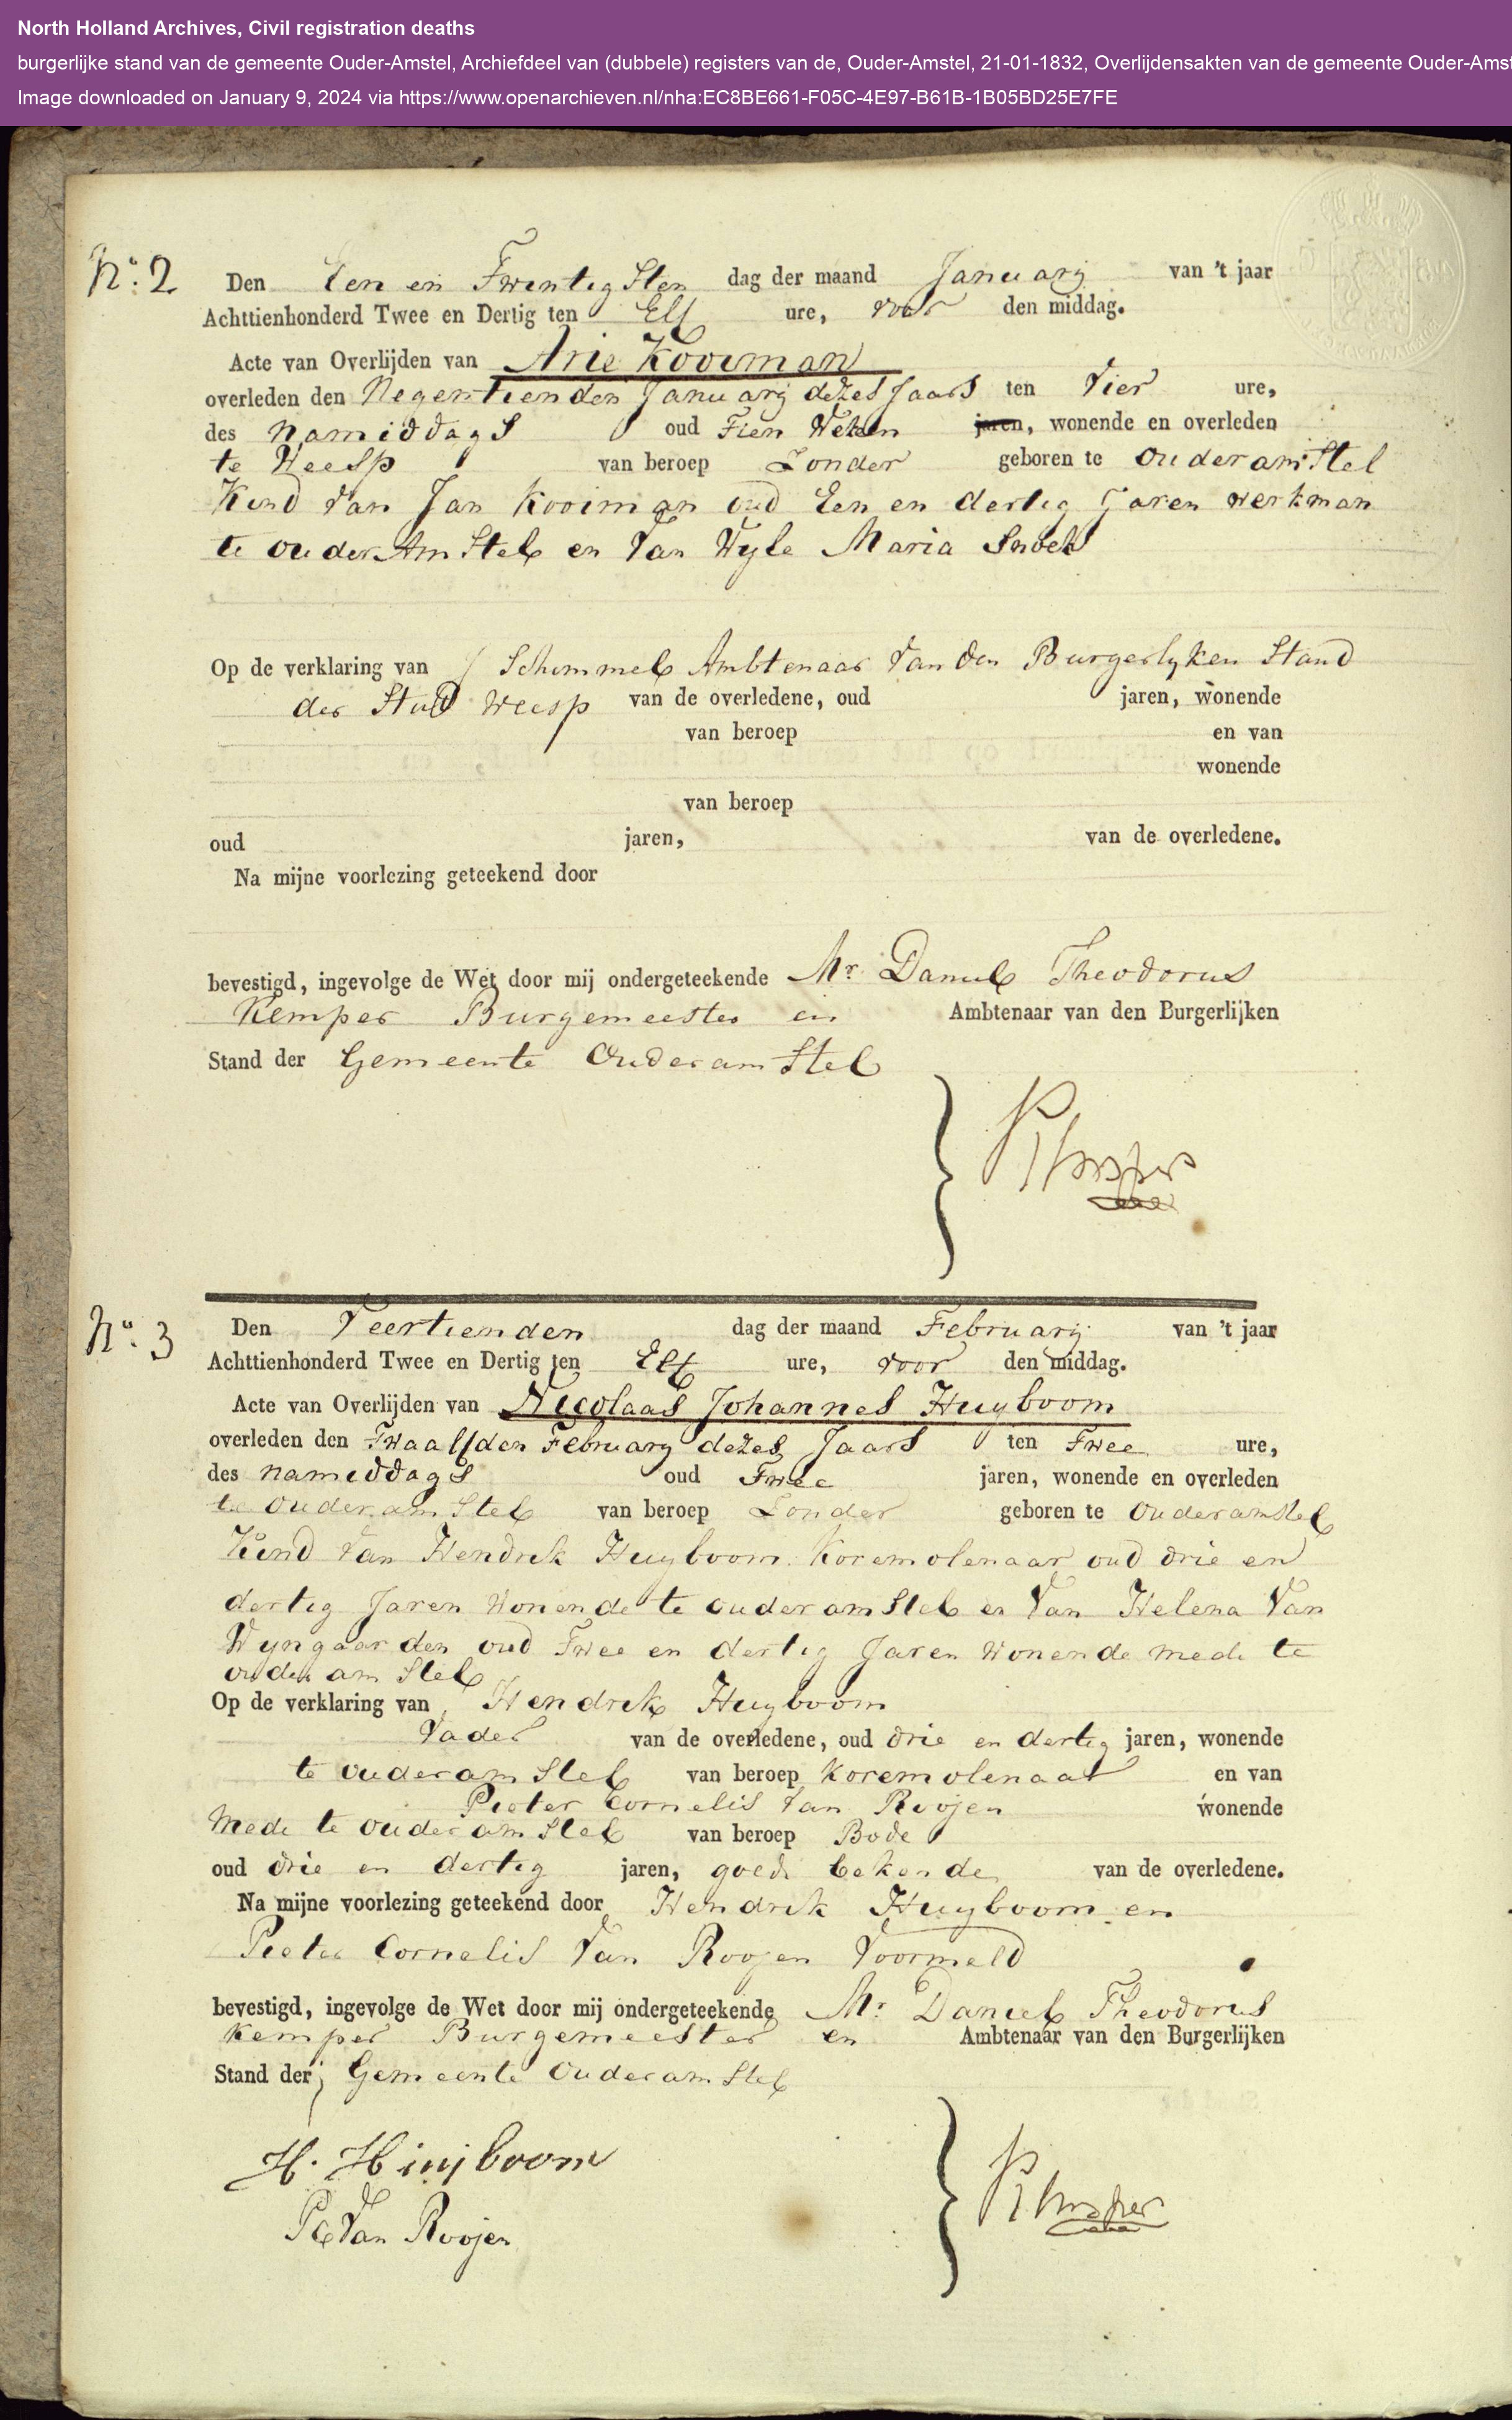 North Holland Archives, Civil registration deaths
burgerlijke stand van de gemeente Ouder-Amstel, Archiefdeel van (dubbele) registers van de, Ouder-Amstel, 21-01-1832, Overlijdensakten van de gemeente Ouder-Amst
Image downloaded on January 9, 2024 via https://www.openarchieven.nl/nha:EC8BE661-F05C-4E97-B61B-1B05BD25E7FE
No. 2 Den Een en Twintigsten dag der maand January van 't jaar
Achttienhonderd Twee en Dertig ten Elf ure, voor den middag.
Acte van Overlijden van Arie Kooiman
overleden den Negentienden January dezes Jaars ten Vier ure,
des Namiddags oud Tien Weken jaren, wonende en overleden
te Weesp van beroep Zonder geboren te Ouderamstel
Kind van Jan Kooiman oud Een en dertig Jaren werkman
te ouder Amstel en van Wyle Maria Snoek
Op de verklaring van J Schimmel Ambtenaar van den Burgerlyken Stand
der Stad Weesp van de overledene, oud jaren, wonende
van beroep en van
wonende
van beroep
oud jaren, van de overledene.
Na mijne voorlezing geteekend door
bevestigd, ingevolge de Wet door mij ondergeteekende Mr. Daniel Theodorus
Kemper Burgemeester en Ambtenaar van den Burgerlijken
Stand der Gemeente Ouderamstel
Kemper
No. 3 Den Veertienden dag der maand February van 't jaar
Achttienhonderd Twee en Dertig ten Elf ure, voor den middag.
Acte van Overlijden van Nicolaas Johannes Huyboom
overleden den Twaalfden February dezes Jaars ten Twee ure,
des namiddags oud Twee jaren, wonende en overleden
te ouderamstel van beroep Zonder geboren te Ouderamstel
Kind van Hendrik Huyboom Koremolenaar oud drie en
dertig Jaren Wonende te ouderamstel en Van Helena Van
Wyngaarden oud Twee en dertig Jaren Wonende mede te
ouderamstel
Op de verklaring van Hendrik Huyboom
Vader van de overledene, oud drie en dertig jaren, wonende
te ouderamstel van beroep Koremolenaar en van
Pieter Cornelis Van Roojen wonende
Mede te ouderamstel van beroep Bode
oud drie en dertig jaren, goede bekende van de overledene.
Na mijne voorlezing geteekend door Hendrik Huyboom en
Pieter Cornelis Van Roojen Voormeld
bevestigd, ingevolge de Wet door mij ondergeteekende Mr. Daniel Theodorus
Kemper Burgemeester en Ambtenaar van den Burgerlijken
Stand der Gemeente Ouderamstel
H. Huijboom
PC Van Roojen
Kemper